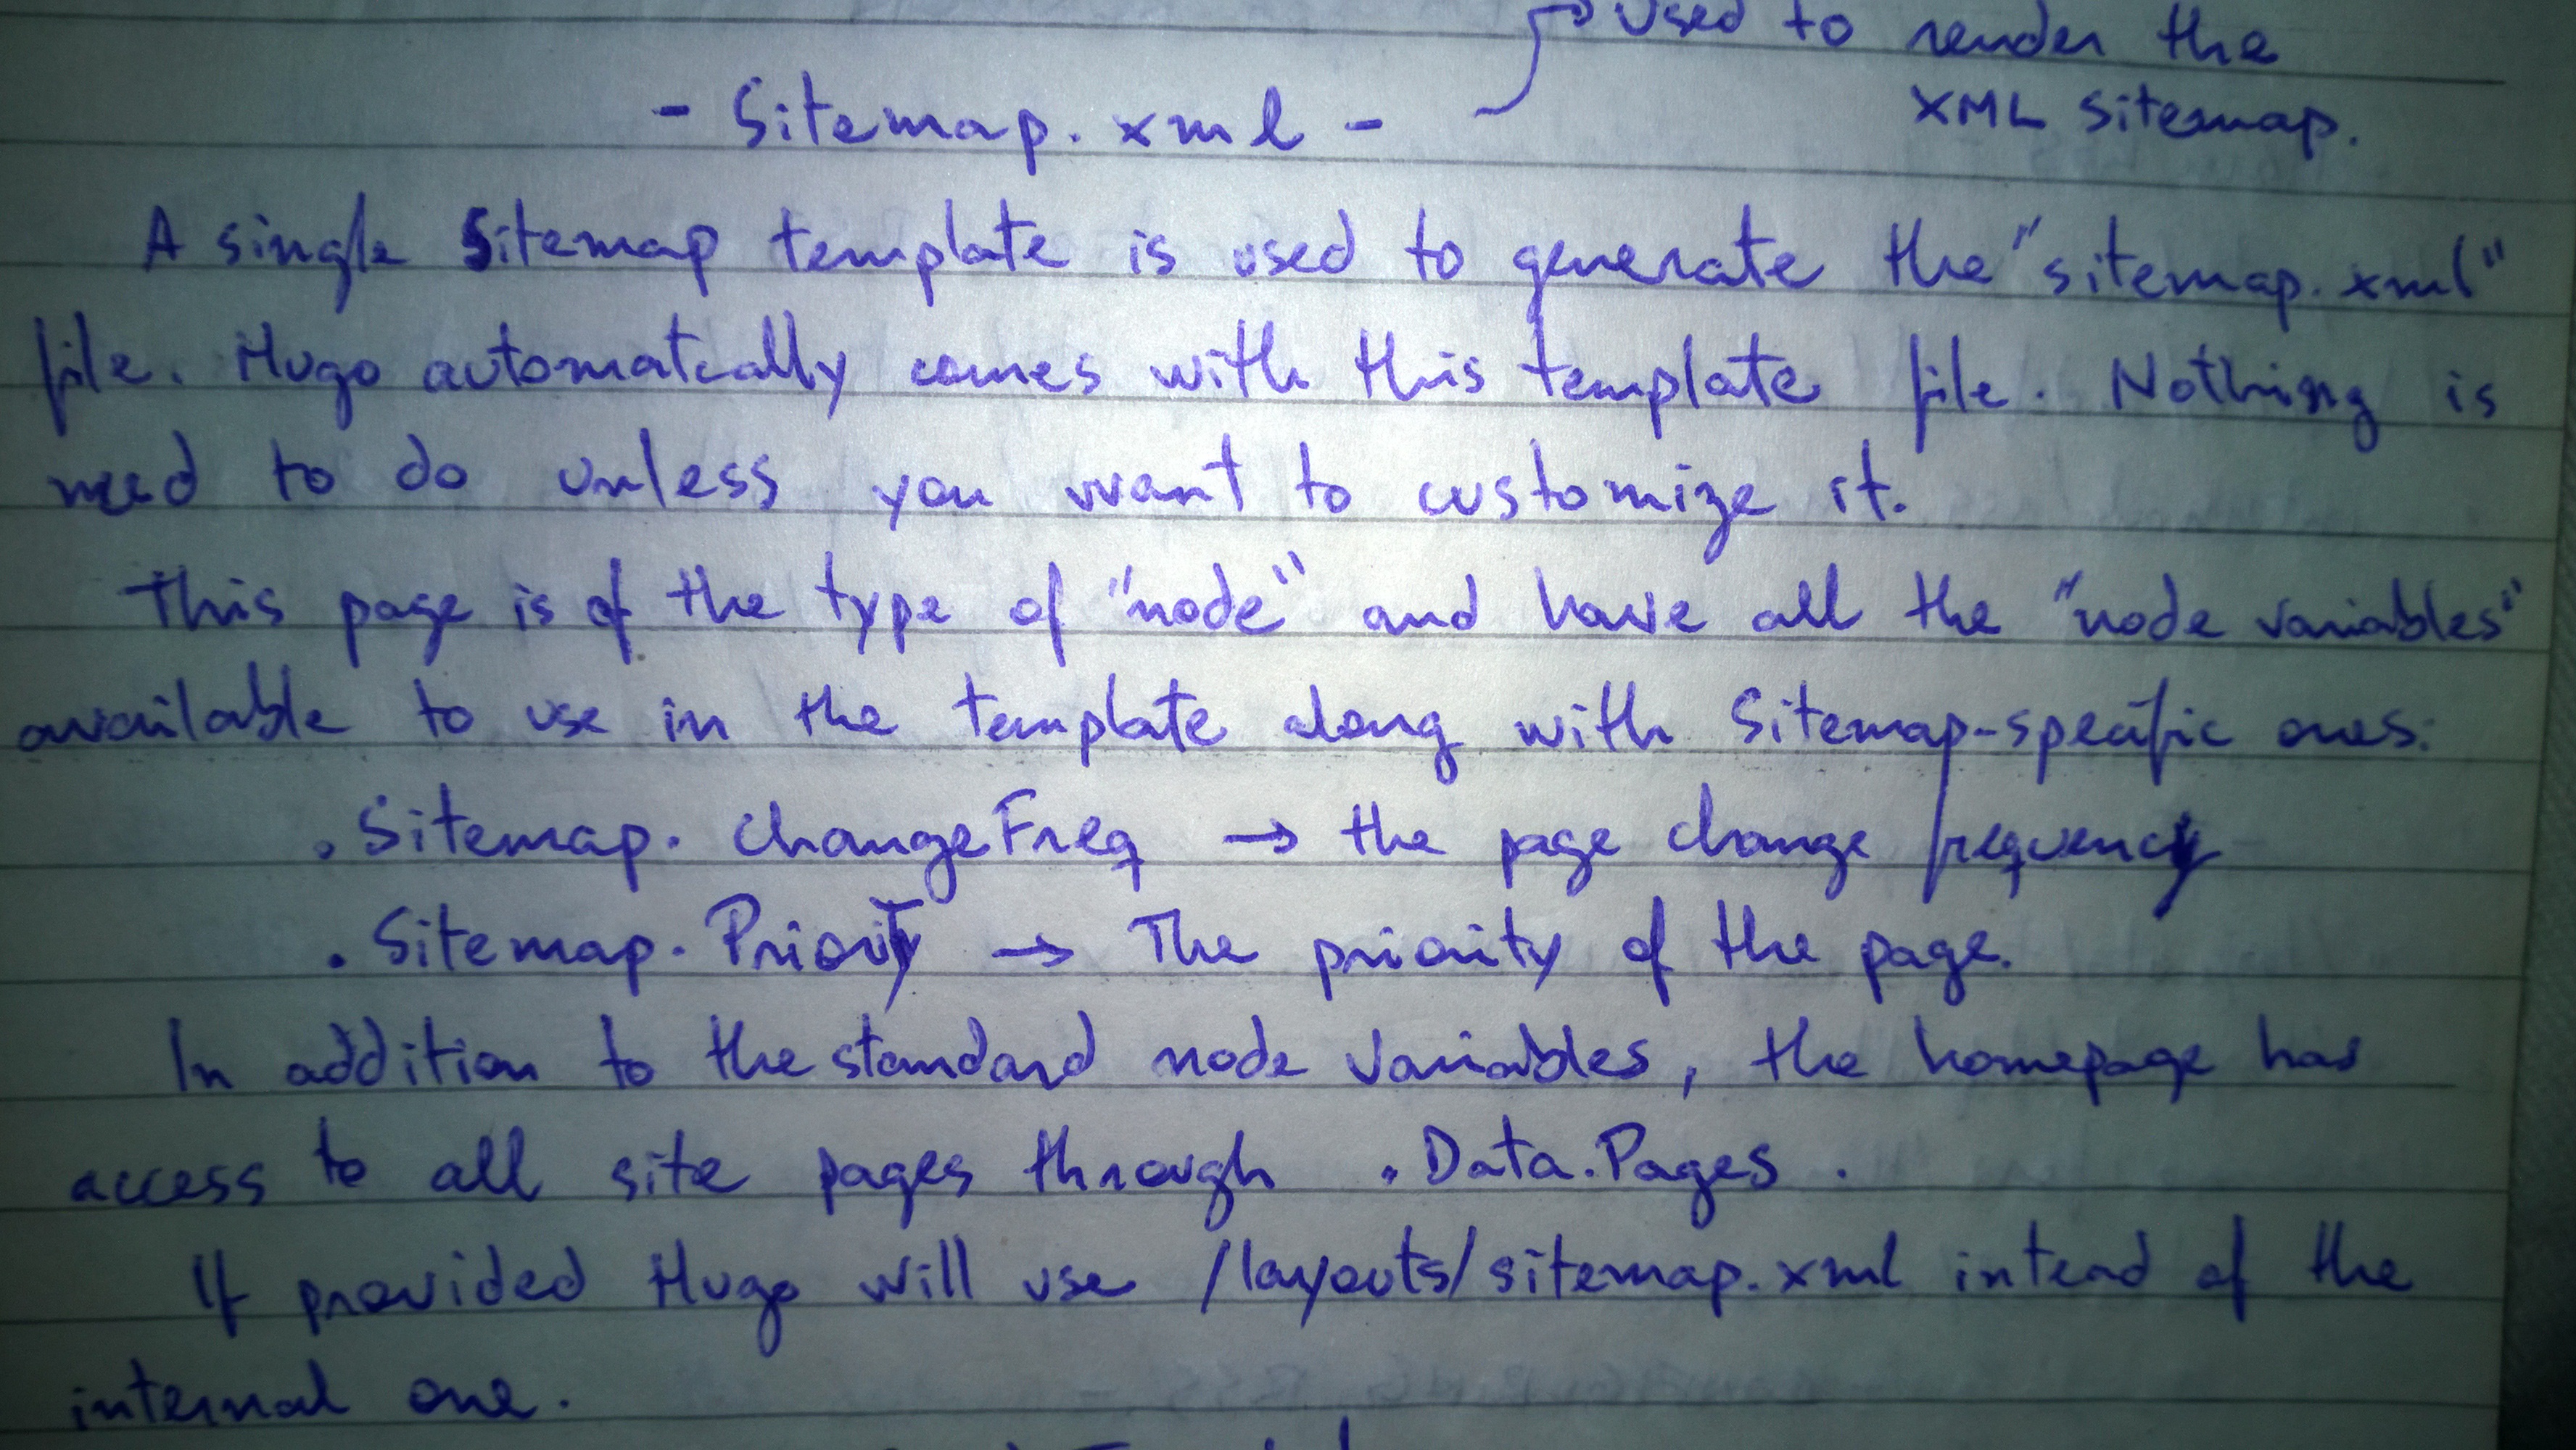 Used to render the
XML Sitemap.
- Sitemap.xml -
A single Sitemap template is used to generate the "sitemap.xml"
file. Hugo automatically comes with this template file. Nothing is
need to do unless you want to customize it.
This page is of the type of "node" and have all the "node variables"
available to use in the template along with Sitemap-specific ones:
.Sitemap.ChangeFreq → the page change frequency
.Sitemap.Priority → The priority of the page.
In addition to the standard node variables, the homepage has
access to all site pages through .Data.Pages .
If provided Hugo will use /layouts/sitemap.xml intead of the
internal one.